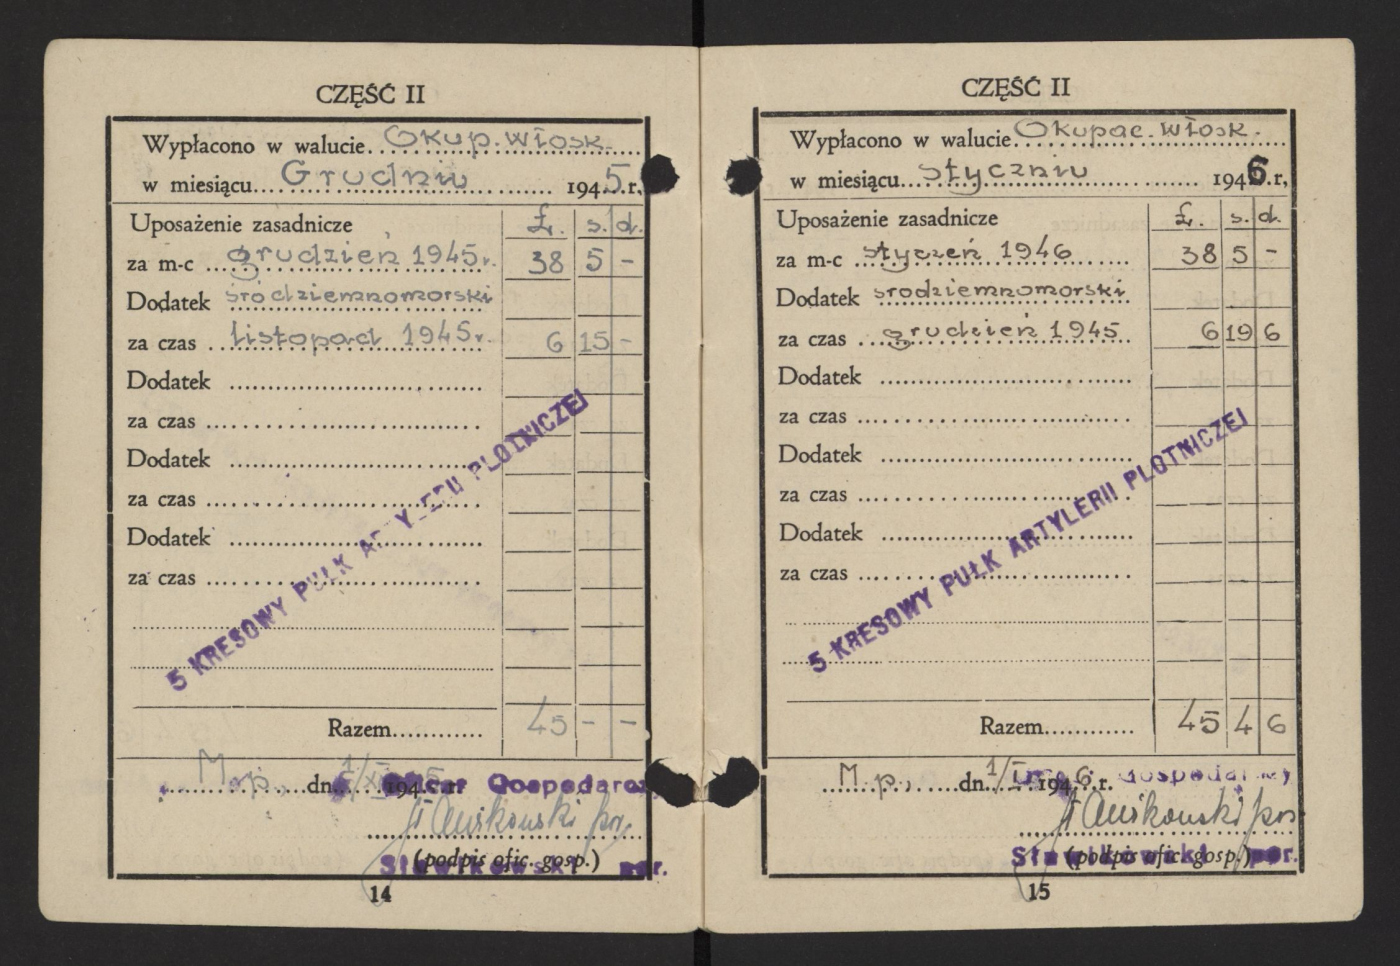 CZĘŚĆ II
Wypłacono w walucie. Okup. włosk.
w miesiącu Grudniu 1945 r.
Uposażenie zasadnicze £. s. d.
za m-c grudzień 1945 r. 38 5 -
Dodatek śródziemnomorski
za czas listopad 1945 r. 6 15 -
Dodatek
za czas
Dodatek
za czas
Dodatek
za czas
5 KRESOWY PUŁK PLOTNICZEJ
Razem 45 - -
M.p., dn. 1/XII 1945 r.
Oficer Gospodarczy
(podpis ofic. gosp.)
Sławikowski por.
14
CZĘŚĆ II
Wypłacono w walucie Okupac. włosk.
w miesiącu styczniu 1946 r.
Uposażenie zasadnicze £. s. d.
za m-c styczeń 1946 38 5 -
Dodatek srodziemnomorski
za czas grudzień 1945 6 19 6
Dodatek
za czas
Dodatek
za czas
Dodatek
za czas
5 KRESOWY PUŁK ARTYLERII PLOTNICZEJ
Razem 45 4 6
M.p., dn. 1/I 1946 r.
Gospodarczy
(podpis ofic. gosp.)
por.
15